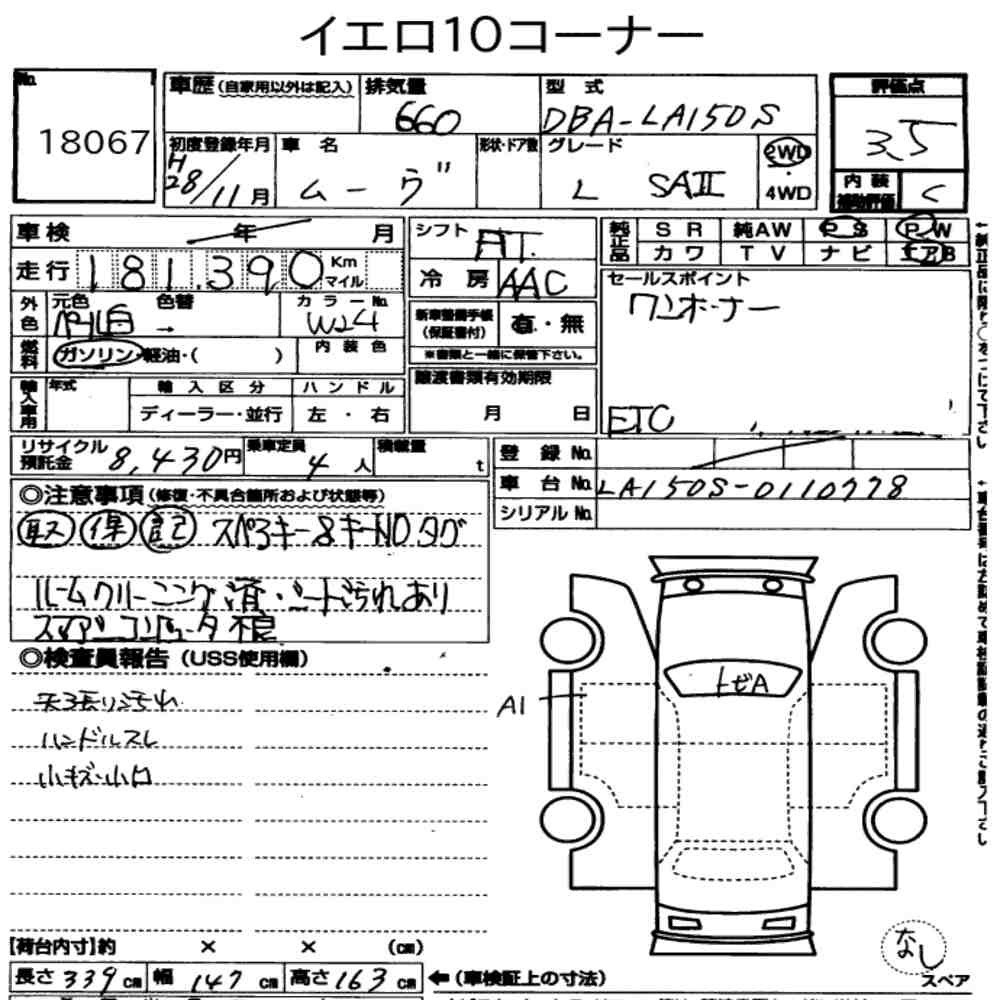 イエロ10コーナー
No.
18067
車歴(自家用以外は記入) 排気量 型式 評価点
660 DBA-LA150S 3.5
初度登録年月 車名 形状・ドア数 グレード 2WD・4WD
H28/11月 ムーヴ L SAⅢ
内装補助評価 C
車検 年 月 シフト AT. 純正品 SR 純AW PS PW
カワ TV ナビ エアB
走行 181,390 Km マイル 冷房 AAC セールスポイント
ワンオーナー
外色 元色 色替 カラーNo. 新車整備手帳(保証書付) 有・無
パール白 → W24
※書類と一緒に保管下さい。
燃料 ガソリン・軽油・( ) 内装色
譲渡書類有効期限
月 日
輸入車用 年式 輸入区分 ハンドル
ディーラー・並行 左・右
ETC
リサイクル預託金 8,430円 乗車定員 4人 積載量 t
登録No.
車台No. LA150S-0110778
シリアルNo.
◎注意事項(修復・不具合箇所および状態等)
取 保 記 スペアキー&キーNOタグ
ルームクリーニング済・シート汚れあり
スマアシコンピュータ不良
◎検査員報告(USS使用欄)
天張り汚れ
ハンドルスレ
小キズ・小凹
トビA
A1
【荷台内寸】約 × × (cm)
なし
スペア
長さ339cm 幅147cm 高さ163cm ←(車検証上の寸法)